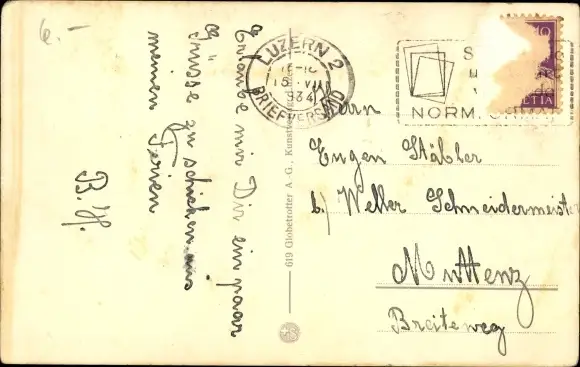 6.-
Erlaube mir Dir ein paar
Grüsse zu schicken aus
meinen Ferien
B. H.
619 Globetrotter A.-G., Kunstverlag, Luzern
LUZERN 2
15. VII
34
BRIEFVERSAND
NORM
10
HELVETIA
Herrn
Eugen Stäbler
b/ Weller Schneidermeister
Muttenz
Breiteweg